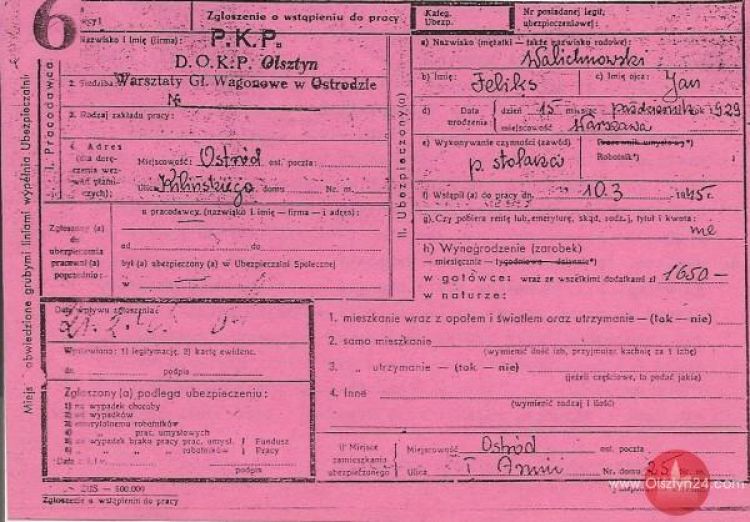 6
Zgłoszenie o wstąpieniu do pracy
Kateg. Ubezp.
Nr posiadanej legit. ubezpieczeniowej:
Miejsca obwiedzione grubymi liniami wypełnia Ubezpieczalnia
I. Pracodawca
Nazwisko i imię (firma):
P.K.P.
D.O.K.P. Olsztyn
2. Siedziba
Warsztaty Gł. Wagonowe w Ostródzie
№
3. Rodzaj zakładu pracy:
4. Adres
(dla doręczenia wezwań płatniczych):
Miejscowość: Ostród ost. poczta:
Ulica Kilińskiego Nr domu Nr. m.
Zgłoszony (a) do ubezpieczenia pracował (a) poprzednio:
u pracodawcy: (nazwisko i imię — firma — i adres):
od do
był (a) ubezpieczony (a) w Ubezpieczalni Społecznej
Data wpływu zgłoszenia:
Wystawiono: 1) legitymację, 2) kartę ewidenc.
dn. podpis
Zgłoszony (a) podlega ubezpieczeniu:
1) na wypadek choroby
2) od wypadków
3) emerytalnemu robotników
4) „ prac. umysłowych
5) na wypadek braku pracy prac. umysł. Fundusz
6) „ „ „ „ robotników Pracy
Data
podpis
ZUS — 500.000
Zgłoszenie o wstąpieniu do pracy
II. Ubezpieczony (a)
a) Nazwisko (mężatki — także nazwisko rodowe):
Walichnowski
b) Imię: Feliks c) Imię ojca: Jan
d) Data urodzenia: dzień 15 miesiąc październik rok 1929
miejscowość Warszawa
e) Wykonywane czynności (zawód)
p. stolarza
Pracownik umysłowy*)
Robotnik*)
f) Wstąpił (a) do pracy dn. 10.3 1945 r.
g) Czy pobiera rentę lub, emeryturę, skąd, rodz., tytuł i kwota:
nie
h) Wynagrodzenie (zarobek)
— miesięcznie — tygodniowo — dziennie*)
w gotówce: wraz ze wszelkimi dodatkami zł 1650—
w naturze:
1. mieszkanie wraz z opałem i światłem oraz utrzymanie — (tak — nie)
2. samo mieszkanie
(wymienić ilość izb, przyjmując kuchnię za 1 izbę)
3. „ utrzymanie — (tak — nie)
(jeżeli częściowe, to podać jakie)
4. Inne
(wymienić rodzaj i ilość)
i) Miejsce zamieszkania ubezpieczonego
Miejscowość Ostród ost. poczta
Ulica I Armii Nr. domu 25 m.
www.Olsztyn24.com